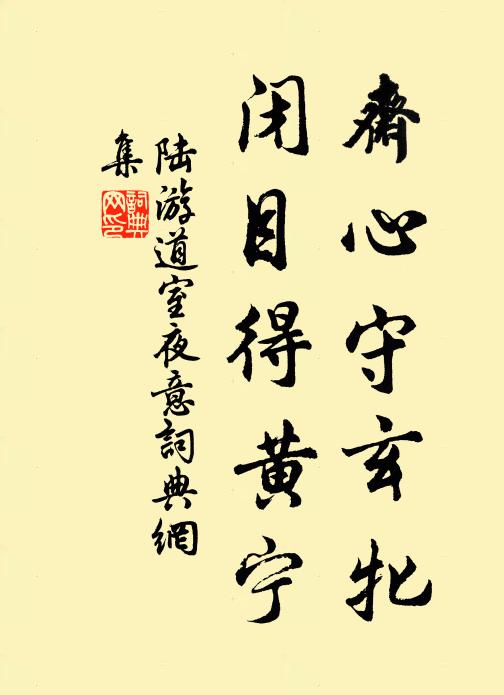 齋心守玄牝
闭目得黄宁
陆游道室夜意詞典網
集
詞典
网印